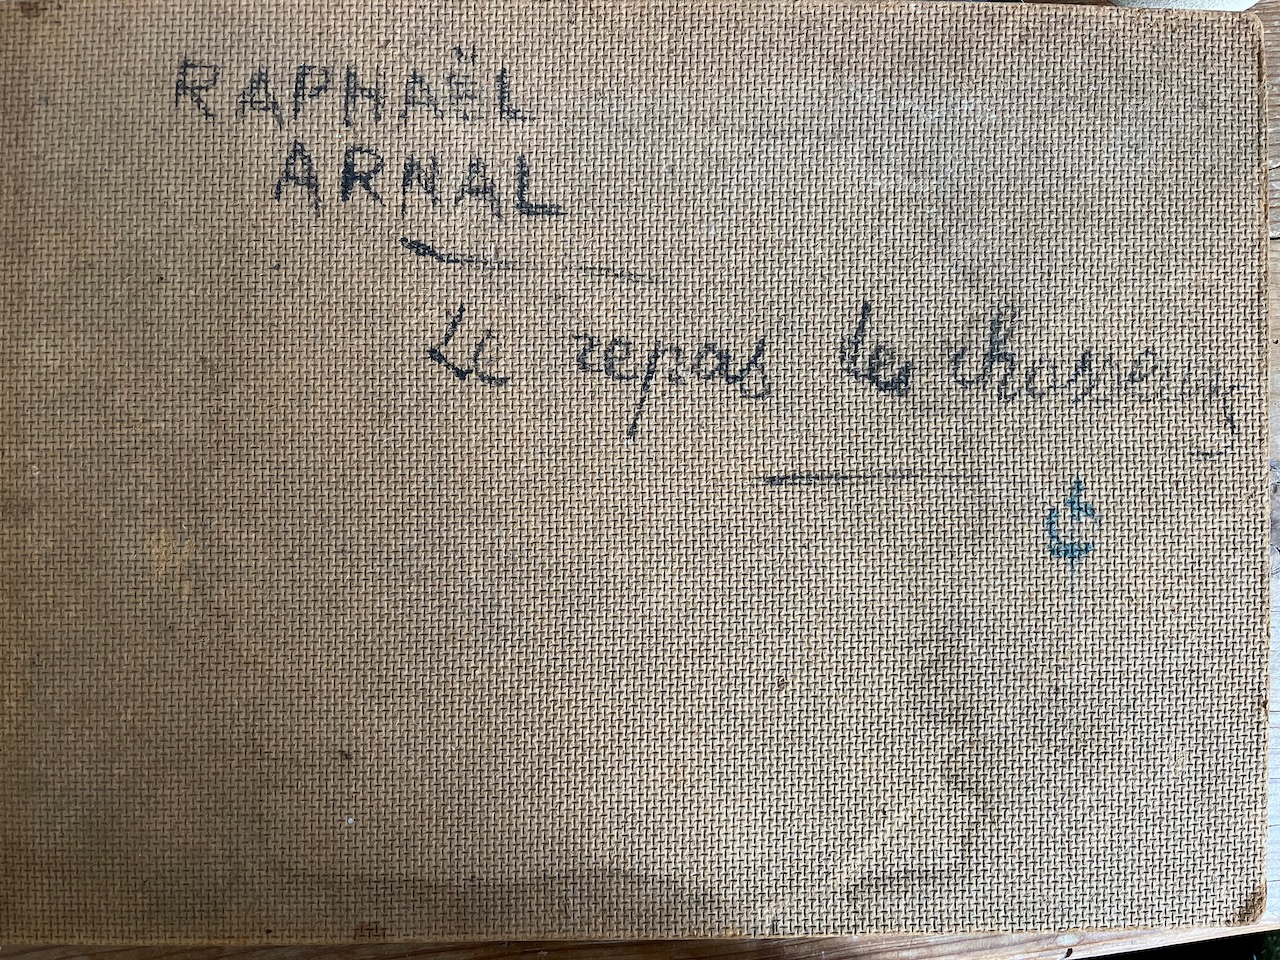 RAPHAËL
ARNAL
Le repas des chasseurs